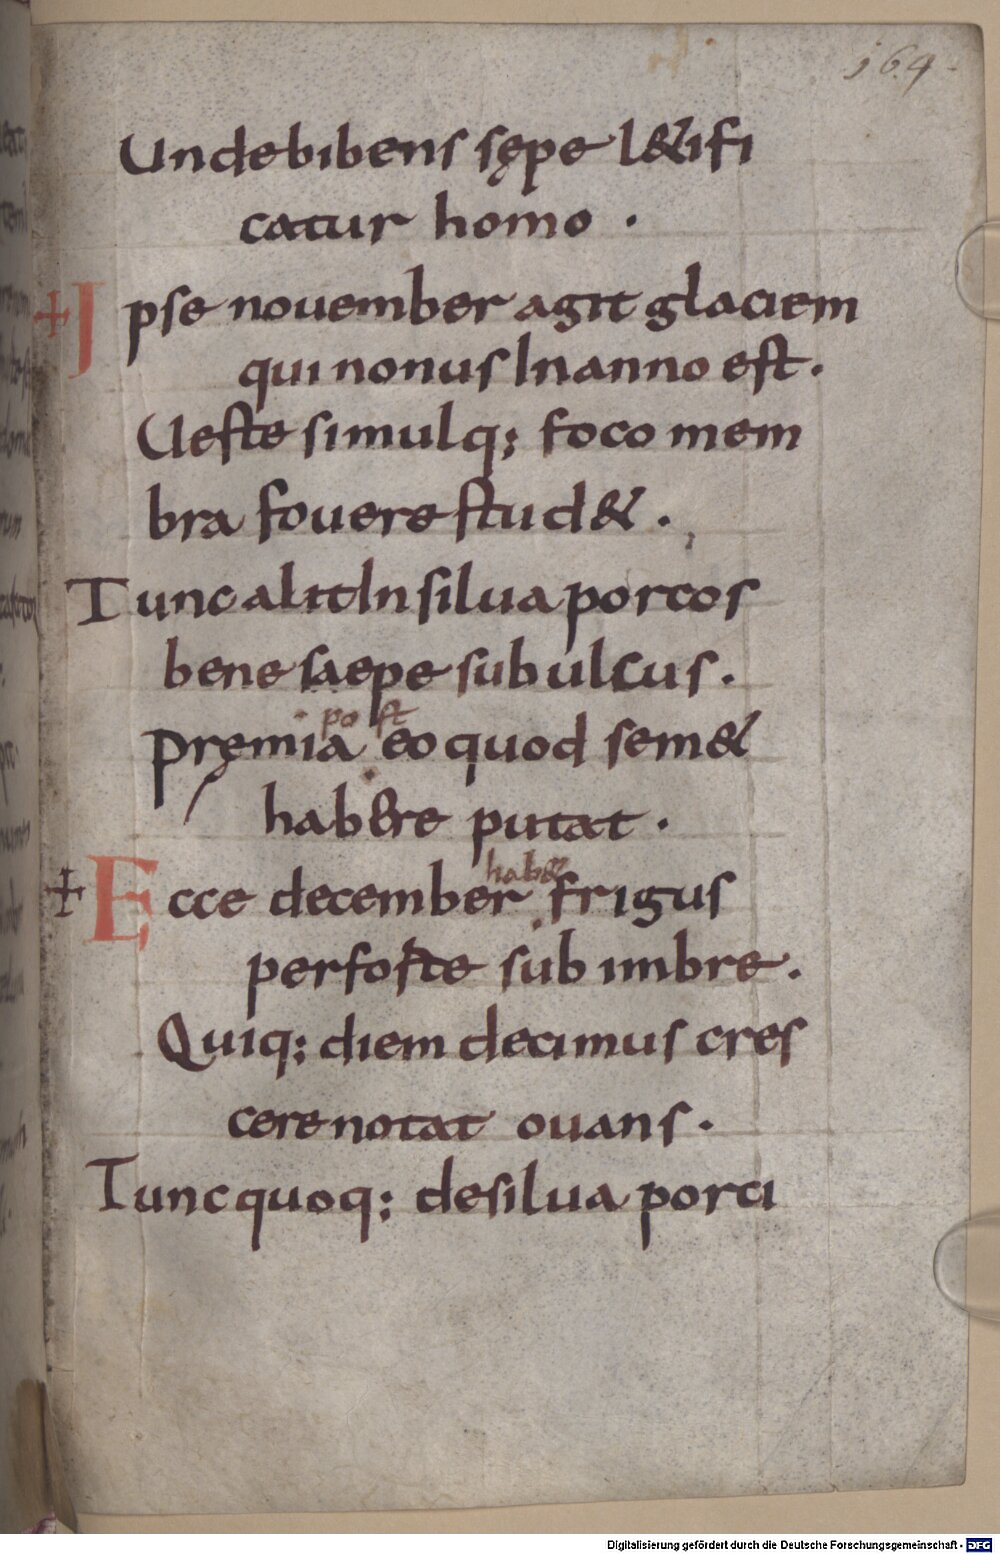 164
Unde bibens sępe l&ifi
catur homo .
+ I pse nouember agit glaciem
qui nonus In anno est .
Ueste simulq; foco mem
bra fouere stud& .
Tunc alit In silua porcos
bene saepe subulcus .
post
Pręmia eo quod sem&
habere putat .
hab&
+ E cce december frigus
perfoste sub imbre .
Quiq; diem decimus cres
cere notat ouans .
Tunc quoq; de silua porci
Digitalisierung gefördert durch die Deutsche Forschungsgemeinschaft - DFG